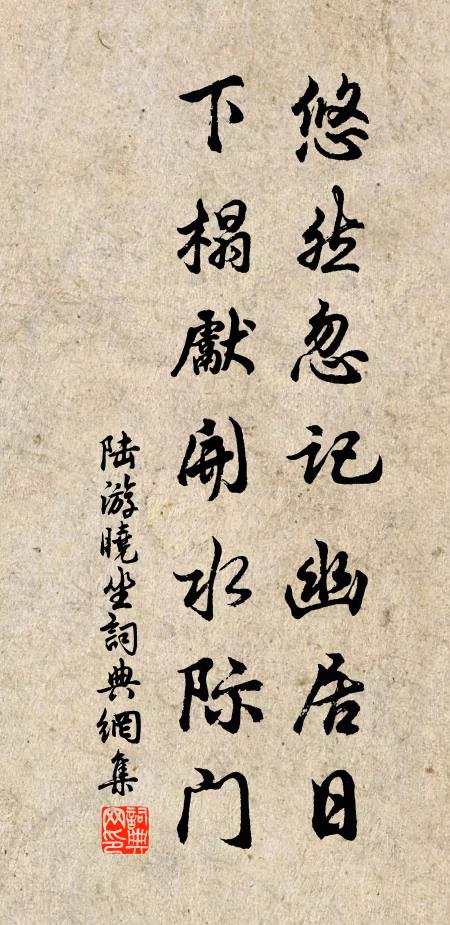 悠然忽记幽居日
下榻獻開水际门
陆游曉坐詞典網集
詞典
网印